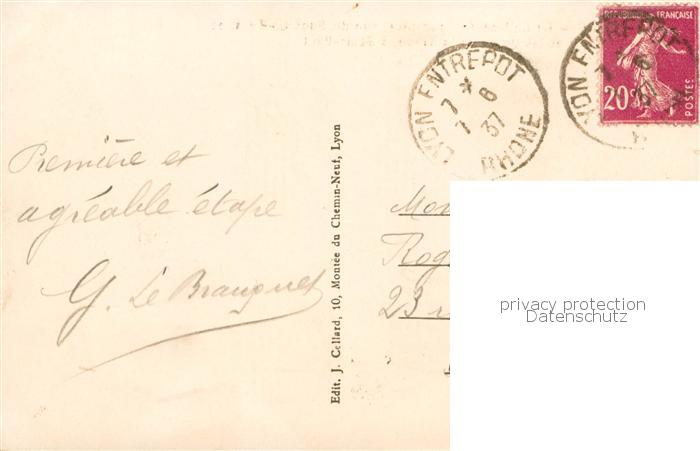 Première et
agréable étape
Edit. J. Cellard, 10, Montée du Chemin-Neuf, Lyon
LYON ENTREPOT
7 * 6
7 37
RHONE
LYON ENTREPOT
REPUBLIQUE FRANÇAISE
20c
POSTES
23
privacy protection
Datenschutz